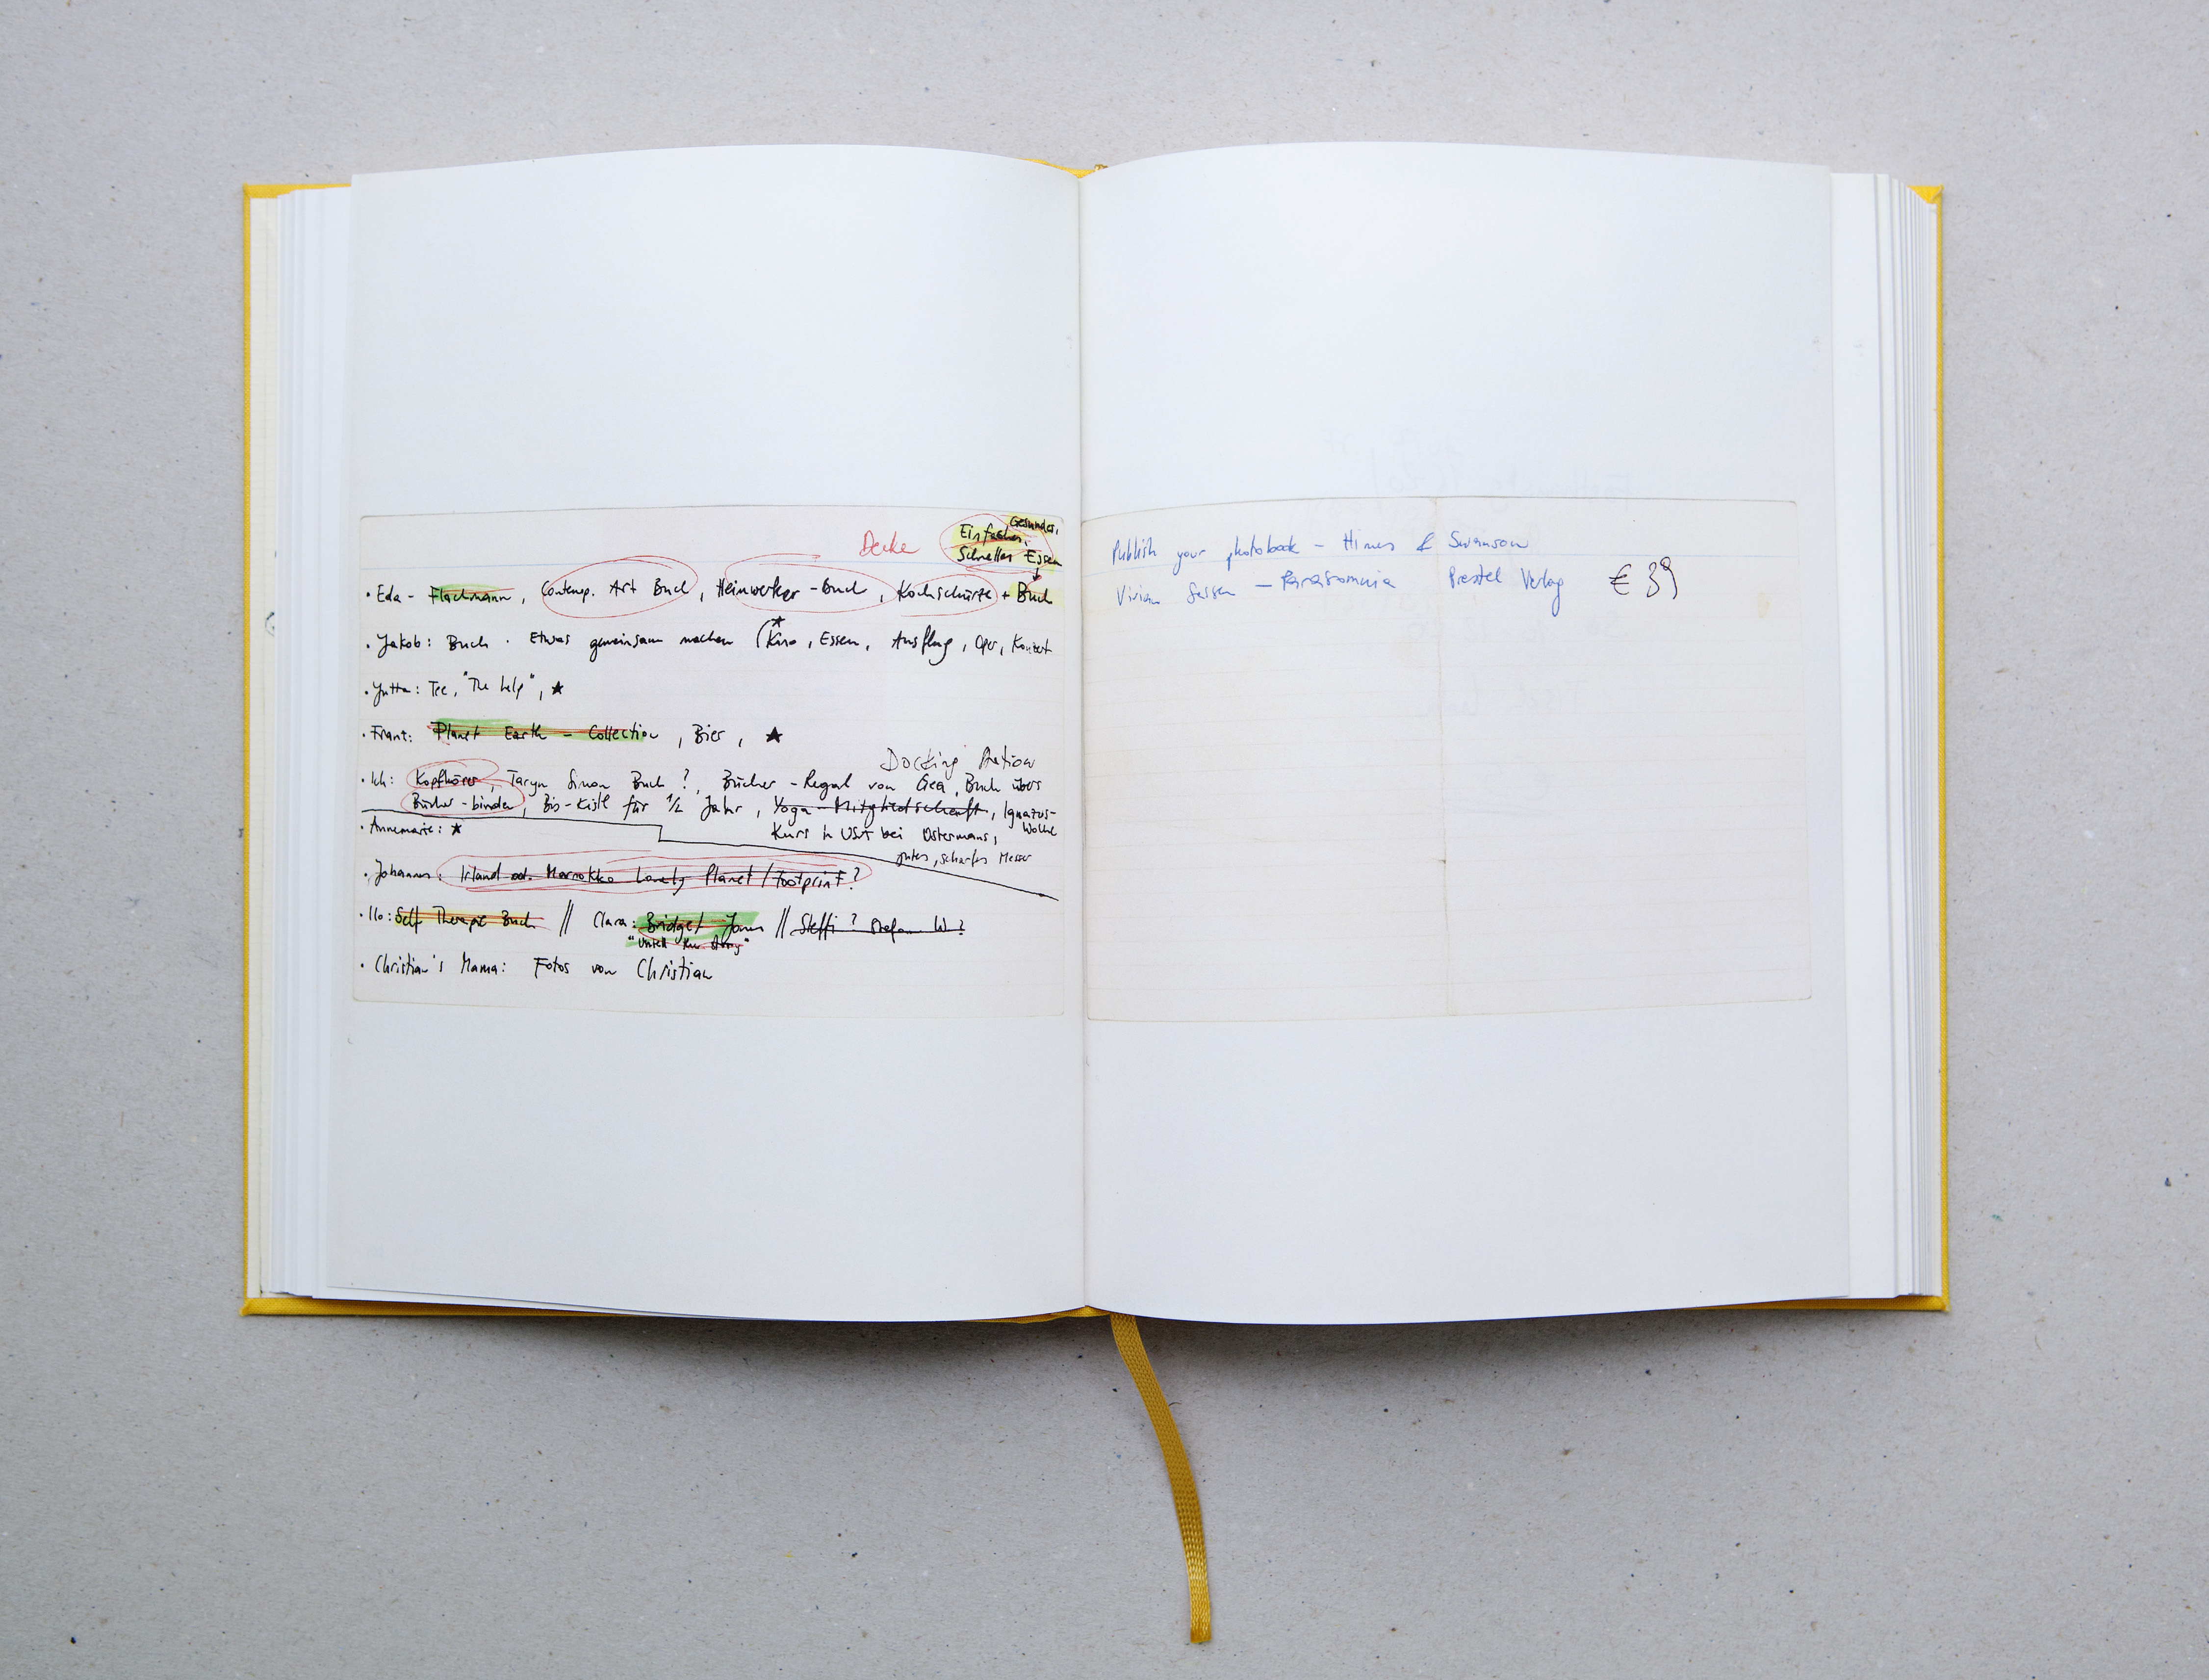 Decke
Gesundes,
Einfaches,
Schnelles Essen
· Eda - Flachmann, Contemp. Art Buch, Heimwerker-Buch, Kochschürze + Buch
· Jakob: Buch · Etwas gemeinsam machen (Kino, Essen, Ausflug, Oper, Konzert
· Jutta: Tee, "The help", ★
· Franz: Planet Earth - Collection, Bier, ★
Docking Station
· Ich: Kopfhörer, Taryn Simon Buch?, Bücher-Regal von Gea, Buch über
Bücher-binden, Bio-Kistl für 1/2 Jahr, Yoga-Mitgliedschaft, Ignazus-
Wolle
· Annemarie: ★
Kurs in bei Ostermans,
gutes, scharfes Messer
· Johannes: Irland od. Marrokko Lonely Planet / Footprint?
· Ilo: Self Therapie Buch // Clara: Bridget Jones // Steffi? Stefan W?
· Christian's Mama: Fotos von Christian
Publish your photobook - Himes & Swanson
Vivian Sassen - Parasomnia Prestel Verlag € 39